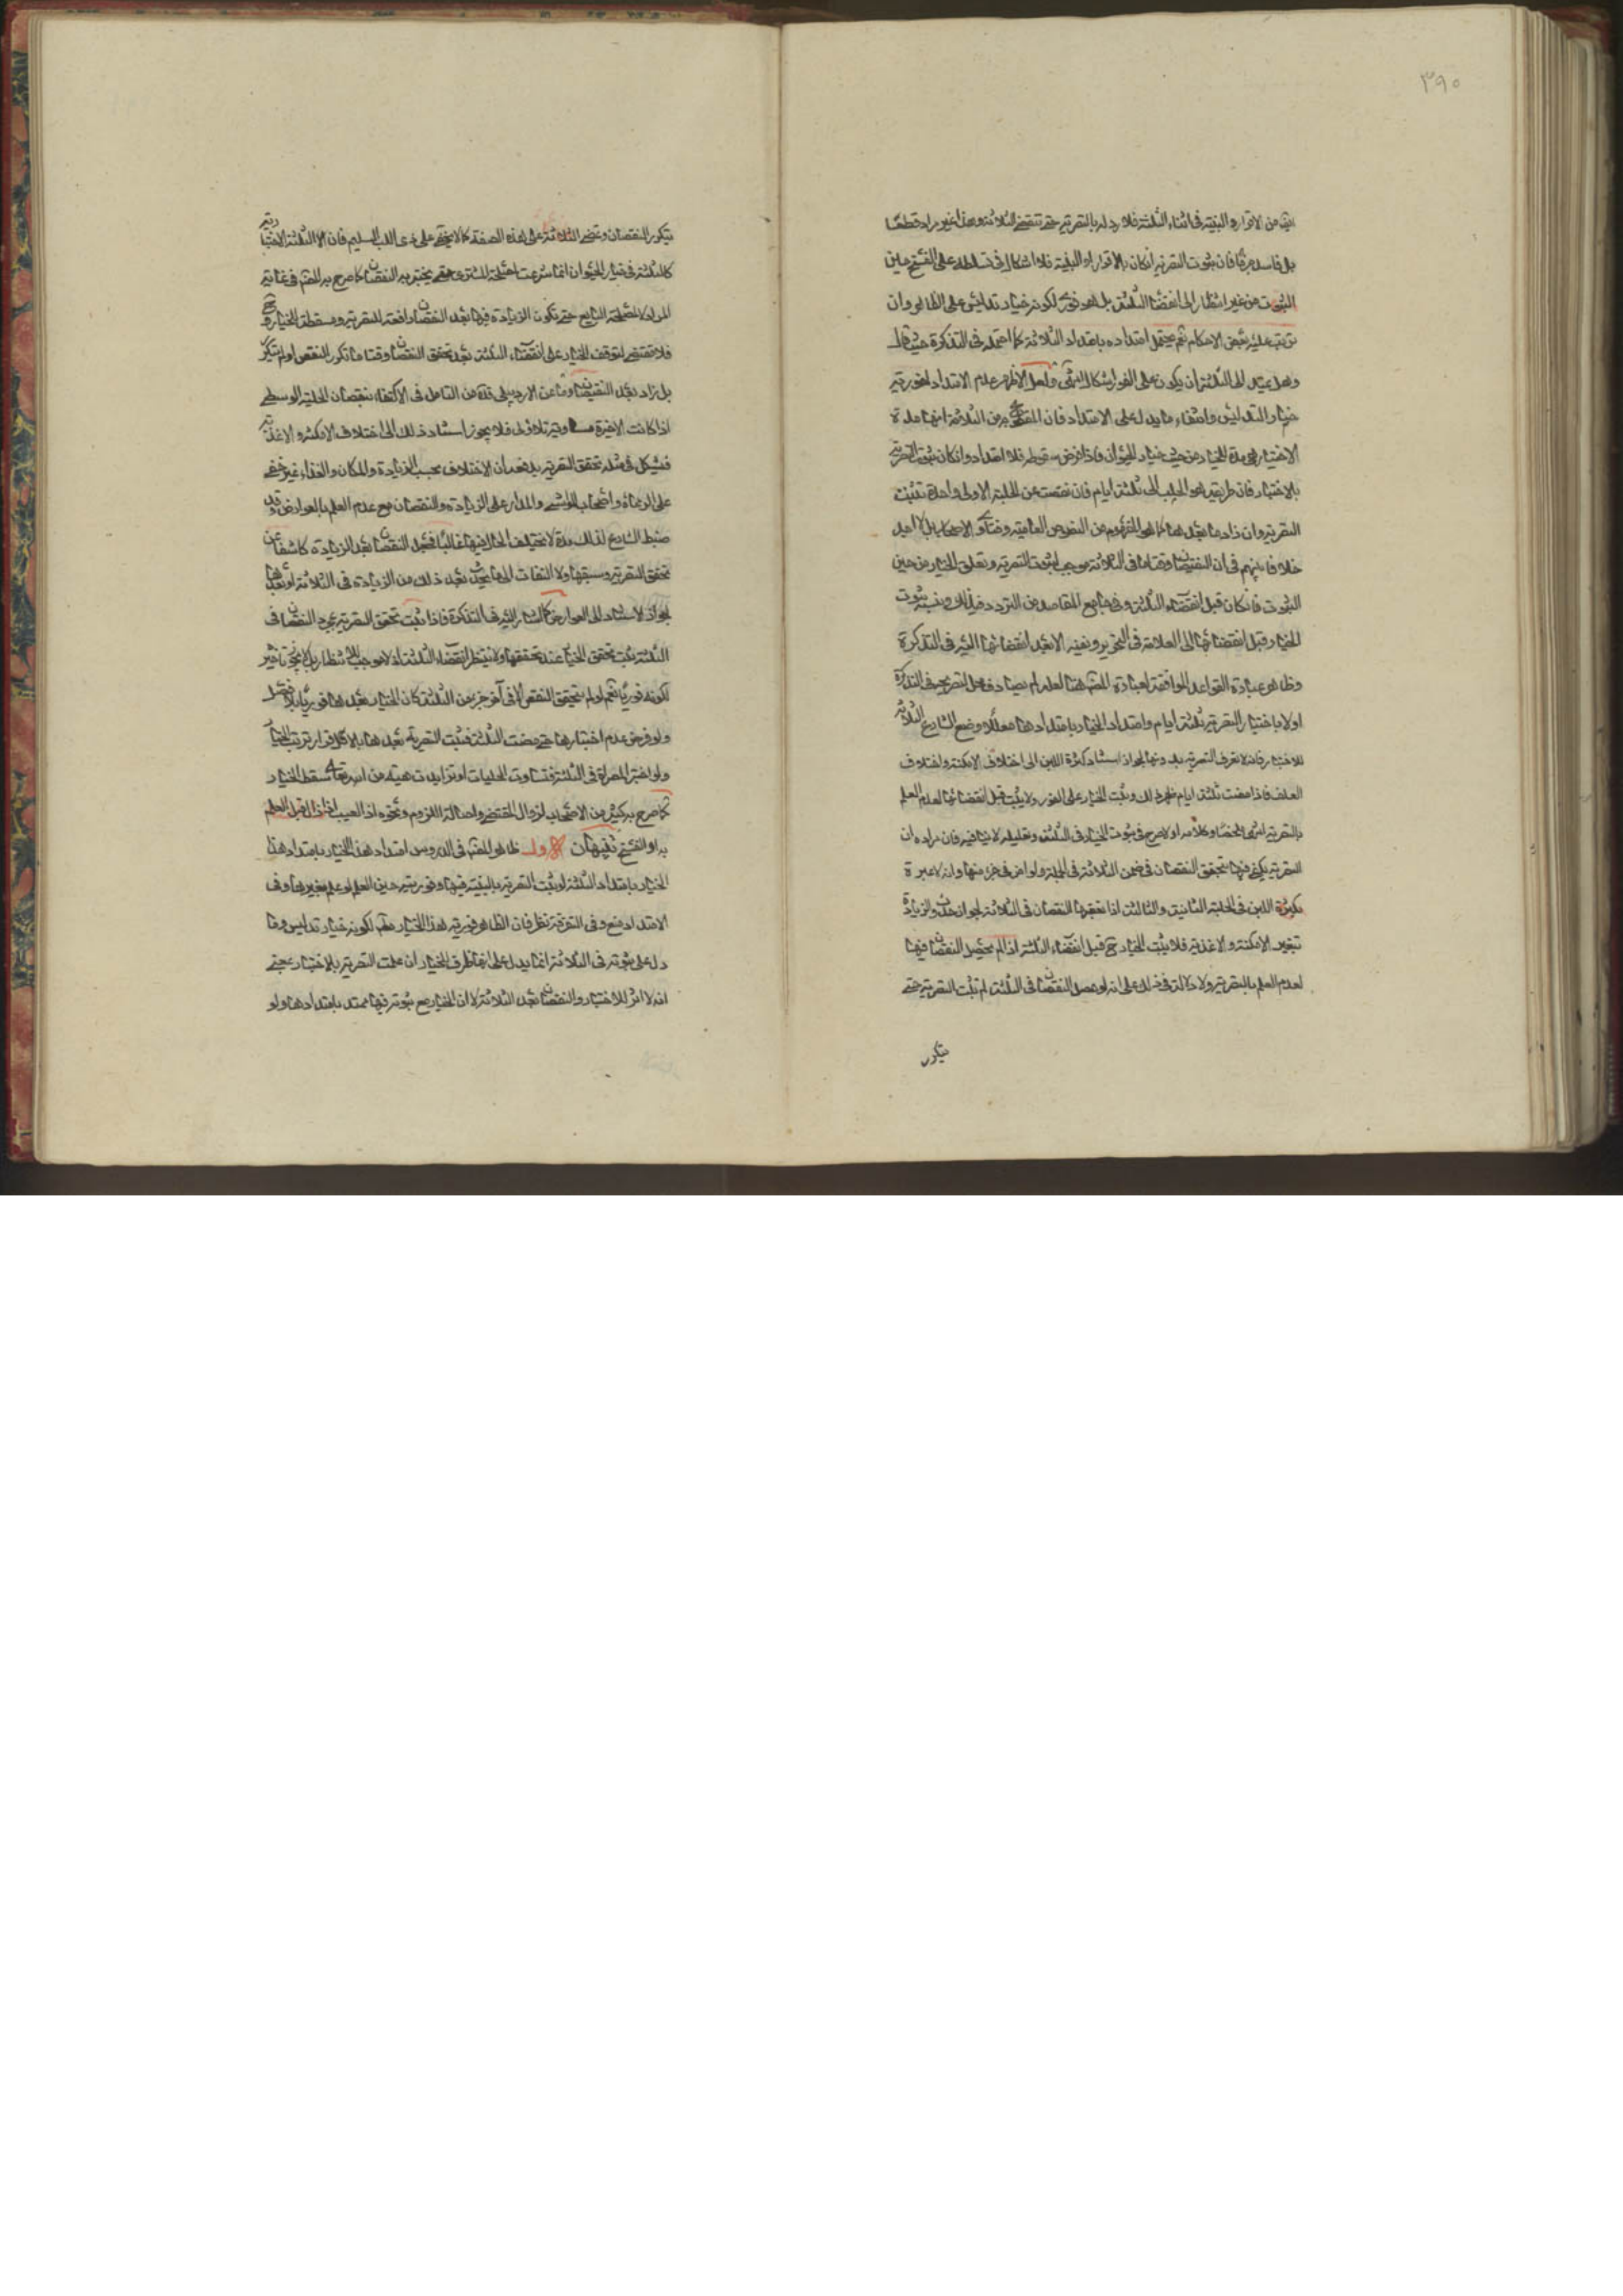 ٣٩٠
من الاقرار والبينة فى اثناء الثلثة فلا رد له بالتصرية حتى تنقضى الثلاثة وهذا غير مراد قطعا
بل فاسد جزما فان ثبوت التصرية ان كان بالاقرار او البينة فلا اشكال فى تسلطه على الفسخ حين
الثبوت من غير انتظار الى انقضاء الثلثة بل هو فورى لكونه خيار تدليس على الظاهر وان
ترتب عليه بعض الاحكام نعم يحتمل امتداده بامتداد الثلاثة كما احتمله فى التذكرة حيث قال
وهل يمتد الى الثلثة ان يكون على الفور اشكال انتهى ولعل الاظهر عدم الامتداد لفورية
خيار التدليس وانتفاء ما يدل على الامتداد فان من الثلاثة انها مدة
الاختبار لا مدة الخيار من حيث خيار الحيوان فاذا فرض سقوطه فلا امتداد وان كان ثبوت التصرية
بالاختبار فان طريقه هو الحلب الى ثلثة ايام فان نقصت عن الحلبة الاولى واحدة تثبت
التصرية وان زاد ما بعدها كما هو المفهوم من النصوص العامية وفتاوى الاصحاب بل لا اجد
خلافا بينهم فى ان النقصان وقتا ما فى الثلاثة موجب لثبوت التصرية وتعلق الخيار من حين
الثبوت فان كان قبل انقضاء الثلثة وفى جامع المقاصد من التردد فى ذلك ونسبة ثبوت
الخيار قبل انقضائها الى العلامة فى التحرير ونفيه الا بعد انقضائها اليه فى التذكرة
وظاهر عبارة القواعد الموافقة لعبارة المصنف هنا لعله لم يصادف محل التصريح فى التذكرة
اولا باختبار التصرية ثلثة ايام وامتداد الخيار بامتدادها معللا وضع الشارع الثلاثة
للاختبار فانه لا تعرف التصرية بدونها لجواز استناد كثرة اللبن الى اختلاف الامكنة واختلاف
العلف فاذا مضت ثلثة ايام ظهر ذلك ويثبت الخيار على الفور ولا يثبت قبل انقضائها لعدم العلم
بالتصرية انتهى ملخصا وكلامه اولا صرح فى ثبوت الخيار فى الثلثة وتعليله لا ينافيه فان مراده ان
التصرية يكفى فيها تحقق النقصان فى ضمن الثلاثة فى الجملة ولو فى جزء منها وانه لا عبرة
بكثرة اللبن فى الحلبة الثانية والثالثة اذا تعقبها النقصان فى الثلاثة لجواز الزيادة
بتغير الامكنة والاغذية فلا يثبت الخيار ح قبل انقضاء الثلثة اذا لم يحصل النقصان فيها
لعدم العلم بالتصرية ولا دلالة فى ذلك على انه لو حصل النقصان فى الثلثة لم تثبت التصرية حتى
يتكرر
يتكرر النقصان وتمضى الثلاثة على هذه الصفة كما لا يخفى على ذى اللب السليم فان الثلثة الاختبارية
كالثلثة فى خيار الحيوان انما شرعت لمصلحة المشترى حتى يختبر به النقصان كما صرح به المصنف فى غاية
المراد لا لمصلحة البايع حتى تكون الزيادة فيها بعد النقصان رافعة للتصرية ومسقطة للخيار وح
فلا مقتضى لتوقف الخيار على انقضاء الثلثة بعد تحقق النقصان وقتا ما تكرر النقص او لم يتكرر
بل زاد بعد النقيصة وما عن الاردبيلى قده من التامل فى الاكتفاء بنقصان الحلبة الوسطى
اذا كانت الاخيرة مساوية للاولى فلا يجوز استناد ذلك الى اختلاف الامكنة والاغذية
فيشكل فى مثله تحقق التصرية يدفعه ان الاختلاف بحسب الزيادة والمكان والغذاء غير خفى
على الرعاة واصحاب المواشى والمدار على الزيادة والنقصان مع عدم العلم بالعوارض وقد
ضبط الشارع لذلك مدة لا تختلف الحال فيها غالبا فجعل النقصان بعد الزيادة كاشفا عن
تحقق التصرية وسبقها ولا التفات الى ما يتجدد بعد ذلك من الزيادة فى الثلاثة او بعدها
لجواز الاستناد الى العوارض كما اشار اليه فى التذكرة فاذا ثبت تحقق التصرية بمجرد النقصان فى
الثلثة ثبت تحقق الخيار عند تحققها ولا ينتظر انقضاء الثلثة اذ لا موجب للانتظار بل لا يجوز تاخير
لكونه فوريا نعم لو لم يتحقق النقص الا فى آخر جزء من الثلثة كان الخيار بعدها فوريا بلا فصل
ولو فرض عدم اختبارها حتى مضت الثلثة فثبت التصرية بعدها بالاقرار ترتب الخيار
ولو اختبر المصراة فى الثلثة فتساوت الحلبات او تزايدت هبة من الله تعالى سقط الخيار
كما صرح به كثير من الاصحاب لزوال المقتضى واصالة اللزوم ونحوه اذا العيب اذا زال قبل العلم
به او الفسخ تنبيهان الاول ظاهر المصنف فى الدروس امتداد هذا الخيار بامتداد هذا
الخيار بامتداد الثلثة لو ثبت التصرية بالبينة فيها وفوريته حين العلم لو علم بغيرها وفى
الامتداد منع وفى التفرقة نظر فان الظاهر فورية هذا الخيار مطلقا لكونه خيار تدليس وما
دل على ثبوته فى الثلاثة انما يدل على انها ظرف للخيار ان علمت التصرية بالاختبار بمعنى
انه لا اثر للاختبار والنقصان بعد الثلاثة لا ان الخيار مع ثبوته فيها ممتد بامتدادها ولو